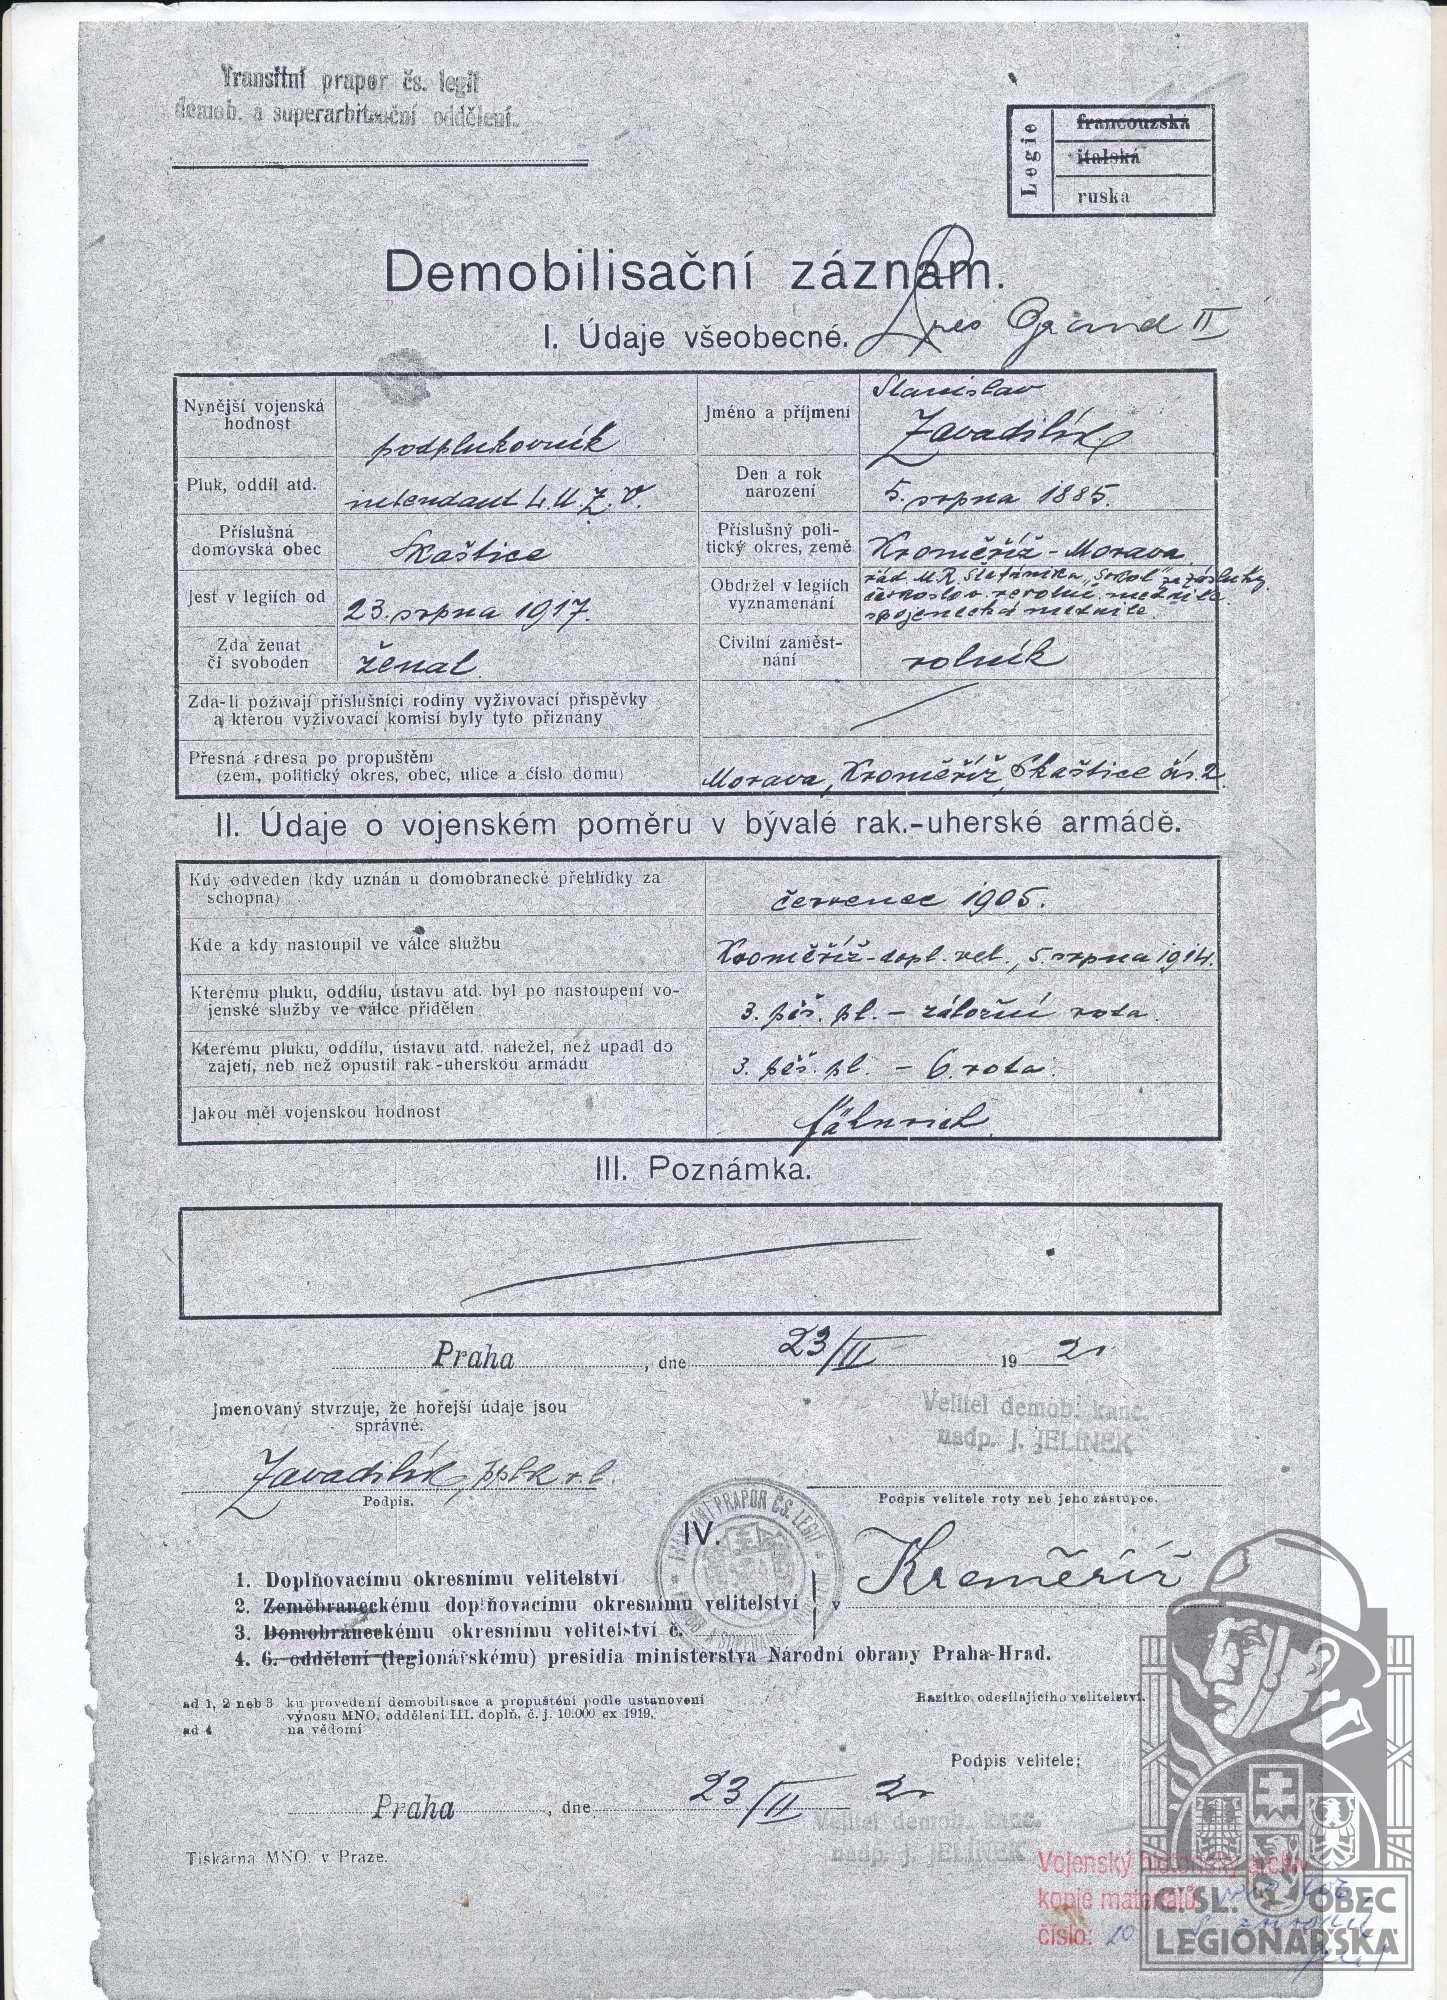 Transitní prapor čs. legií
demob. a superarbitrační oddělení.
Legie
francouzská
italská
ruska
Demobilisační záznam.
I. Údaje všeobecné.
Nynější vojenská hodnost
podplukovník
Jméno a příjmení
Stanislav
Zavadilík
Pluk, oddíl atd.
intendant 4. U. Z. V.
Den a rok narození
5. srpna 1885.
Příslušná domovská obec
Skaštice
Příslušný politický okres, země
Kroměříž - Morava
Jest v legiích od
23. srpna 1917.
Obdržel v legiích vyznamenání
řád M.R. Štefánika „Sokol" za zásluhy
českoslov. revoluč. medaile
spojenecká medaile
Zda ženat či svoboden
ženat
Civilní zaměstnání
rolník
Zda-li požívají příslušníci rodiny vyživovací příspěvky
a kterou vyživovací komisí byly tyto přiznány
Přesná adresa po propuštění
(zem, politický okres, obec, ulice a číslo domu)
Morava, Kroměříž, Skaštice čís. 2
II. Údaje o vojenském poměru v bývalé rak.-uherské armádě.
Kdy odveden (kdy uznán u domobranecké přehlídky za
schopna)
červenec 1905.
Kde a kdy nastoupil ve válce službu
Kroměříž - dopl. vel., 5. srpna 1914.
Kterému pluku, oddílu, ústavu atd. byl po nastoupení vo-
jenské služby ve válce přidělen
3. pěš. pl. - záložní rota
Kterému pluku, oddílu, ústavu atd. náležel, než upadl do
zajetí, neb než opustil rak.-uherskou armádu
3. pěš. pl. - 6. rota.
Jakou měl vojenskou hodnost
fähnrich
III. Poznámka.
Praha, dne 23/II 1921
Jmenovaný stvrzuje, že hořejší údaje jsou
správné.
Velitel demob. kanc.
nadp. J. JELÍNEK
Zavadilík, pplk
Podpis.
Podpis velitele roty neb jeho zástupce.
IV.
1. Doplňovacímu okresnímu velitelství
2. Zeměbraneckému doplňovacímu okresnímu velitelství
3. Domobraneckému okresnímu velitelství č.
v Kroměříž
4. 6. oddělení (legionářskému) presidia ministerstva Národní obrany Praha-Hrad.
ad 1, 2 neb 3 ku provedení demobilisace a propuštění podle ustanovení
výnosu MNO, oddělení III. doplň. č. j. 10.000 ex 1919.
ad 4 na vědomí
Razítko odesílajícího velitelství.
Podpis velitele:
Praha, dne 23/II 21
Velitel demob. kanc.
nadp. J. JELÍNEK
Tiskárna MNO. v Praze.
Vojenský historický archiv
kopie materiálů
číslo: 10
ČSL. OBEC
LEGIONÁŘSKÁ